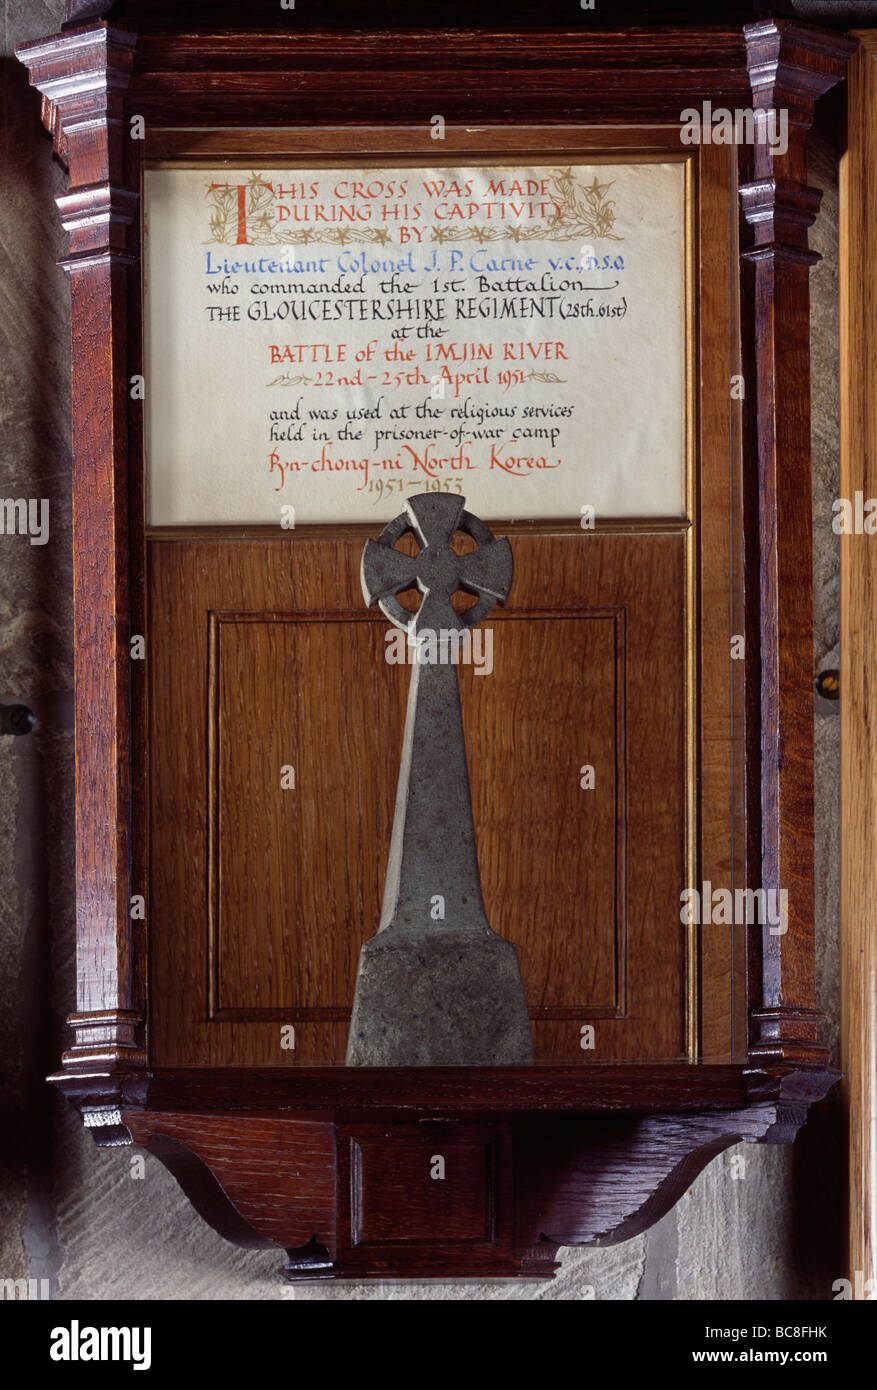 THIS CROSS WAS MADE
DURING HIS CAPTIVITY
BY
Lieutenant Colonel J. P. Carne V.C., D.S.O.
who commanded the 1st. Battalion
THE GLOUCESTERSHIRE REGIMENT (28th. 61st)
at the
BATTLE of the IMJIN RIVER
22nd - 25th April 1951
and was used at the religious services
held in the prisoner-of-war camp
Pyn-chong-ni North Korea
1951 - 1953
alamy
alamy
alamy
alamy
a
a
a
a
a
a
a
a
a
a
a
a
a
a
alamy
Image ID: BC8FHK
www.alamy.com